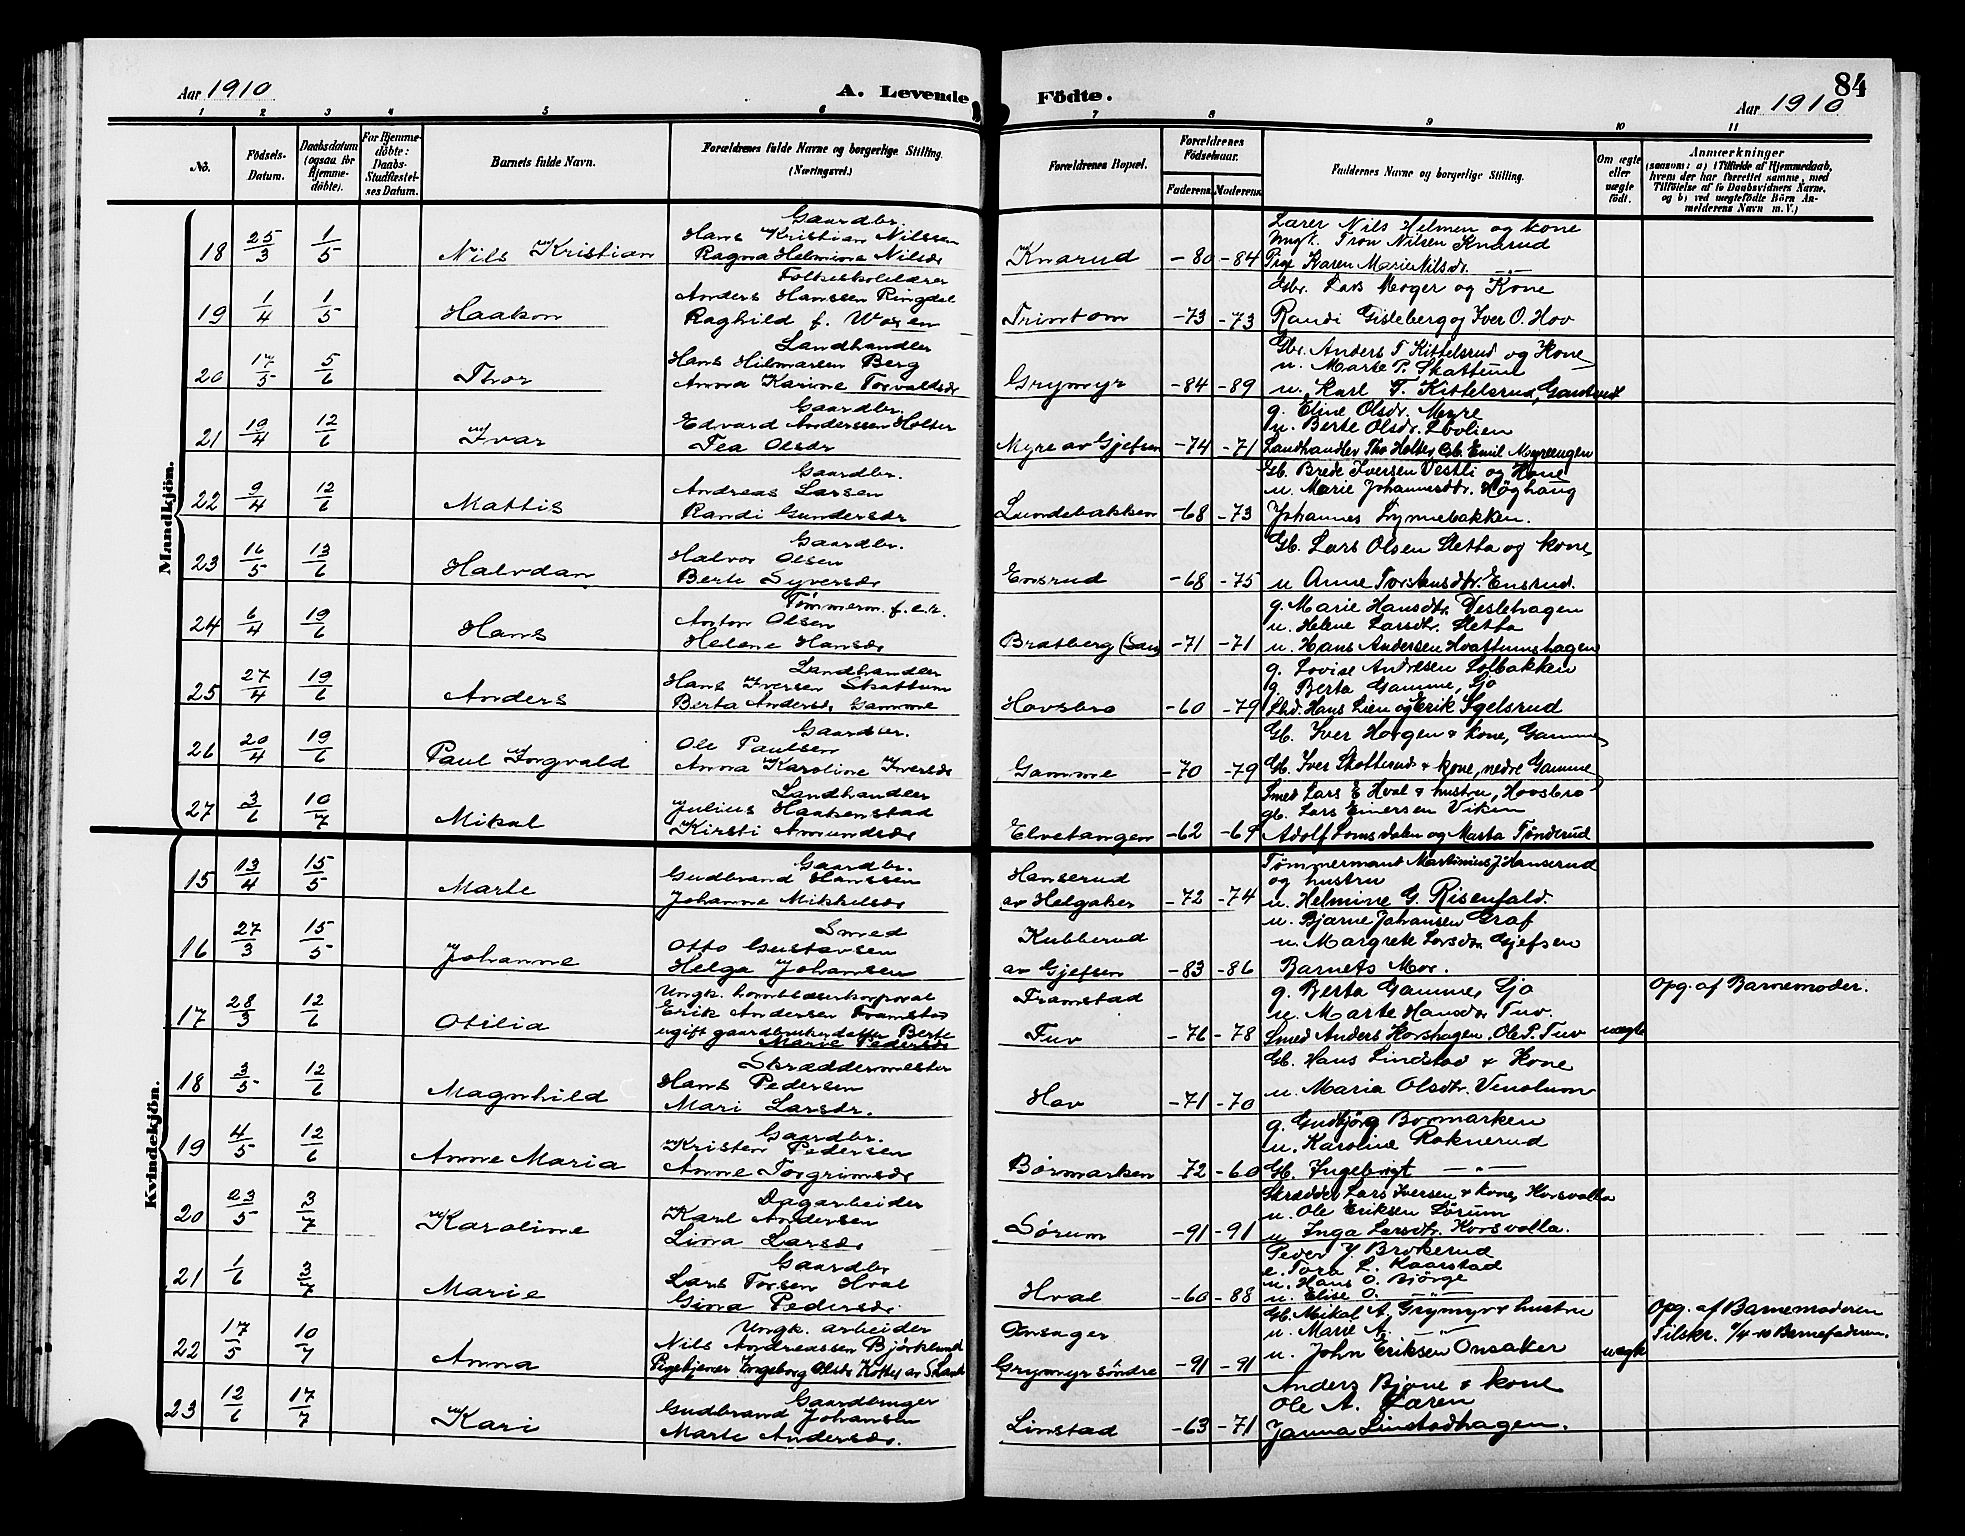 84
Aar 1910
A. Levende Födte.
Aar 1910
1 2 3 4 5 6 7 8 9 10 11
No.
Födsels-Datum.
Daabsdatum (ogsaa för Hjemme-döbte).
For Hjemme-döbte: Daabs-Stadfæstel-ses Datum.
Barnets fulde Navn.
Forældrenes fulde Navne og borgerlige Stilling. (Næringsvei.)
Forældrenes Bopæl.
Forældrenes Födselsaar.
Faderens. Moderens.
Faddernes Navne og borgerlige Stilling.
Om ægte eller uægte födt.
Anmærkninger
(saasom: a) i Tilfælde af Hjemmedaab, hvem der har forrettet samme, med Tilföielse af to Daabsvidners Navne, og b) ved uægtefödte Börn An-melderens Navn m. V.)
Mandkjön.
18 25/3 1/5 Nils Kristian
Gaardbr.
Hans Kristian Nilssen
Ragna Helmine Nilsdr
Knarud -80 -84
Lærer Nils Helmen og kone
Ungk. Tron Nilsen Knarud
Pige Karen Marie Nilsdr. —"—
19 1/4 1/5 Haakon
Folkeskolelærer
Anders Hanssen Ringdal
Raghild f. Woxen
Trintom -73 -73
Gbr. Lars Moger og Kone
Randi Gisleberg og Iver O. Hov
20 17/5 5/6 Thor
Landhandler
Hans Hilmarsen Berg
Anna Karine Torvaldsdr
Grymyr -84 -89
Gbr. Anders T. Kittelsrud og Kone
u. Marte P. Skattum
u. Karl T. Kittelsrud,
21 19/4 12/6 Ivar
Gaardbr.
Edvard Anderssen Holter
Tea Olsdr
Myre av Gjefsen -74 -71
g. Eline Olsdr. Myre
u. Berte Olsdr. Lovlien
Landhandler Th. Holter, Gb. Emil Myreengen
22 9/4 12/6 Mattis
Gaardbr.
Andreas Larsen
Randi Gundersdr
Lundebakken -68 -73
Gb. Brede Iversen Vestli og Kone
u. Marie Johannesdtr. Høghaug
Johannes Lynnebakken.
23 16/5 13/6 Halvdan
Gaardbr.
Halvor Olsen
Berte Syversdr
Ensrud -68 -75
Gb. Lars Olsen Sletta og kone,
u Anne Torstensdtr. Ensrud.
24 6/4 19/6 Hans
Tømmerm. f.e.r.
Anton Olsen
Helene Hansdr
Bratberg (San) -71 -71
g. Marie Hansdtr. Veslehagen
u. Helene Larsdtr. Sletta
u. Hans Andersen Hvattumshagen
25 27/4 19/6 Anders
Landhandler
Hans Iversen Skattum
Berta Andersdr Gamme
Hovsbro -60 -79
g. Lovise Andresen Solbakken
g. Berta Gamme, Gjø
Lhd. Hans Lien og Erik Egelsrud
26 20/4 19/6 Paul Ingvald
Gaardbr.
Ole Paulsen
Anna Karoline Iversdr
Gamme -70 -79
Gb. Iver Horgen & kone, Gamme
Gb. Iver Skotterud & kone, nedre Gamme
27 3/6 10/7 Mikal
Landhandler
Julius Haakenstad
Kirsti Amundsdr
Elvetangen -62 -69
Smed Lars E Hval & hustru, Hovsbro
gb. Lars Einersen Viken
Adolf Lomsdalen og Marta Tønderud
Kvindekjön.
15 13/4 15/5 Marte
Gaardbr.
Gudbrand Hanssen
Johanne Mikkelsdr
Hanserud av Helgaker -72 -74
Tømmermand Martinius J Hanserud
og hustru
u. Helmine G. Risenfald.
16 27/3 15/5 Johanne
Smed
Otto Gustavsen
Helga Johansen
Kubberud av Gjefsen -83 -86
u. Bjarne Johansen Graf
u. Margrete Larsdtr Gjefsen
Barnets Mor.
17 28/3 12/6 Otilia
Ungk. hornblæserkorporal
Erik Andersen Framstad
ugift gaardbrukerdatter Berte
Marie Pedersdr
Framstad Tuv -76 -78
g. Berta Gamme, Gjø
u. Marte Hansdtr Tuv.
Smed Anders Korshagen, Ole P. Tuv
uægte
Opg. af Barnemoder.
18 3/5 12/6 Magnhild
Skræddermester
Hans Pedersen
Mari Larsdr.
Hov -71 -70
Gb. Hans Lindstad & Kone
u. Maria Olsdtr. Vendum
19 4/5 12/6 Anne Maria
Gaardbr.
Kristen Pedersen
Anne Torgrimsdr
Børmarken 72 -60
g. Gudbjörg Bormarken
u. Karoline Roknerud
Gb. Ingebrigt —"—
20 23/5 3/7 Karoline
Dagarbeider
Karl Andersen
Lina Larsdr
Sørum -91 -91
Skrædder Lars Iversen & kone, Korsvolla
u. Ole Eriksen Sørum
u Inga Larsdtr. Korsvolla.
21 1/6 3/7 Marie
Gaardbr
Lars Torsen Hval
Gina Pedersdr.
Hval -60 -88
Peder J. Brokerud
e. Tora L. Kaarstad
u. Hans O. Bjørge
u. Elise O. —"—
22 17/5 10/7 Anna
Ungk. arbeider
Nils Andreassen Björklund
Pigetjener Ingeborg Olsdr
Onsager Grymyr söndre -91 -91
Gb. Mikal A. Grymyr & hustru
u. Marie A. —"—
u. John Eriksen Onsaker
uægte
Opg. af Barnemoderen
Tilskr. 9/4-10 Barnefaderen.
23 12/6 17/7 Kari
Gaardbruger
Gudbrand Johansen
Marte Andersdr.
Linstad -63 -71
Anders Bjone & kone
Ole A. Laren
Janna Linstadhagen.